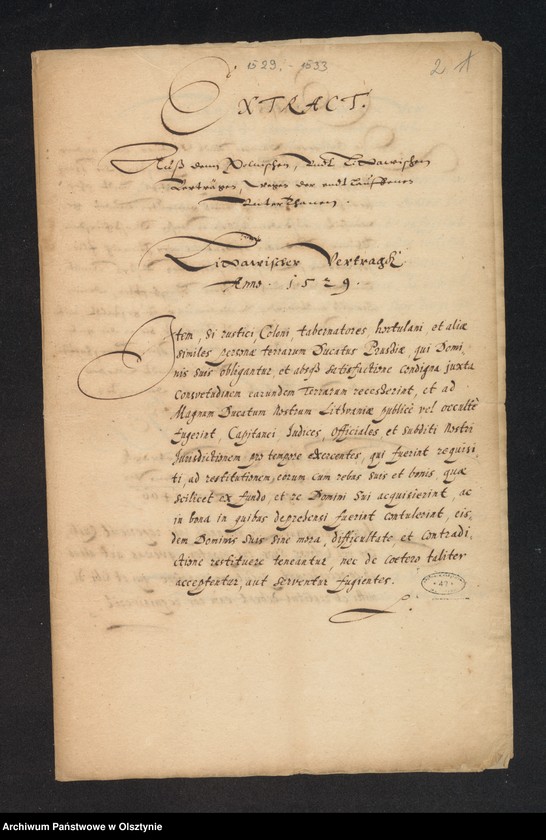 1529. - 1533
2
EXTRACT.
Auß denn Polnischen, vndt Littawischen
Verträgen, Wegen der endtlauffenen
Vnterthanen.
Littawischer Vertragk
Anno. 1529.
Item, Si rustici, Coloni, tabernatores, hortulani, et aliæ
similes personæ terrarum Ducatus Prussiæ, qui Domi-
nis suis obligantur, et absq̃ satisfactione condigna juxta
Consvetudinem earundem Terrarum recesserint, et ad
Magnum Ducatum Nostrum Lithvaniæ publicè vel occultè
fugerint, Capitanei Iudices, Officiales, et subditi Nostri
Jurisdictionem pro tempore exercentes, qui fuerint requisi-
ti, ad restitutionem, eorum cum rebus suis et bonis, quæ
scilicet ex fundo, et re Domini sui acquisierint, ac
in bona in quibus deprehensi fuerint contulerint, eis-
dem Dominis suis sine mora, difficultate et contradi-
ctione restituere teneantur, nec de cœtero taliter
acceptentur, aut serventur fugientes.
Archiwum Państwowe w Olsztynie